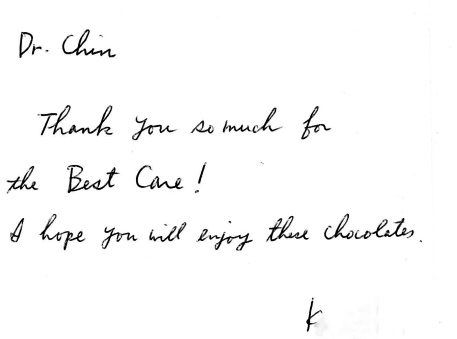 Dr. Chin
Thank you so much for
the Best Care!
I hope you will enjoy these chocolates.
K